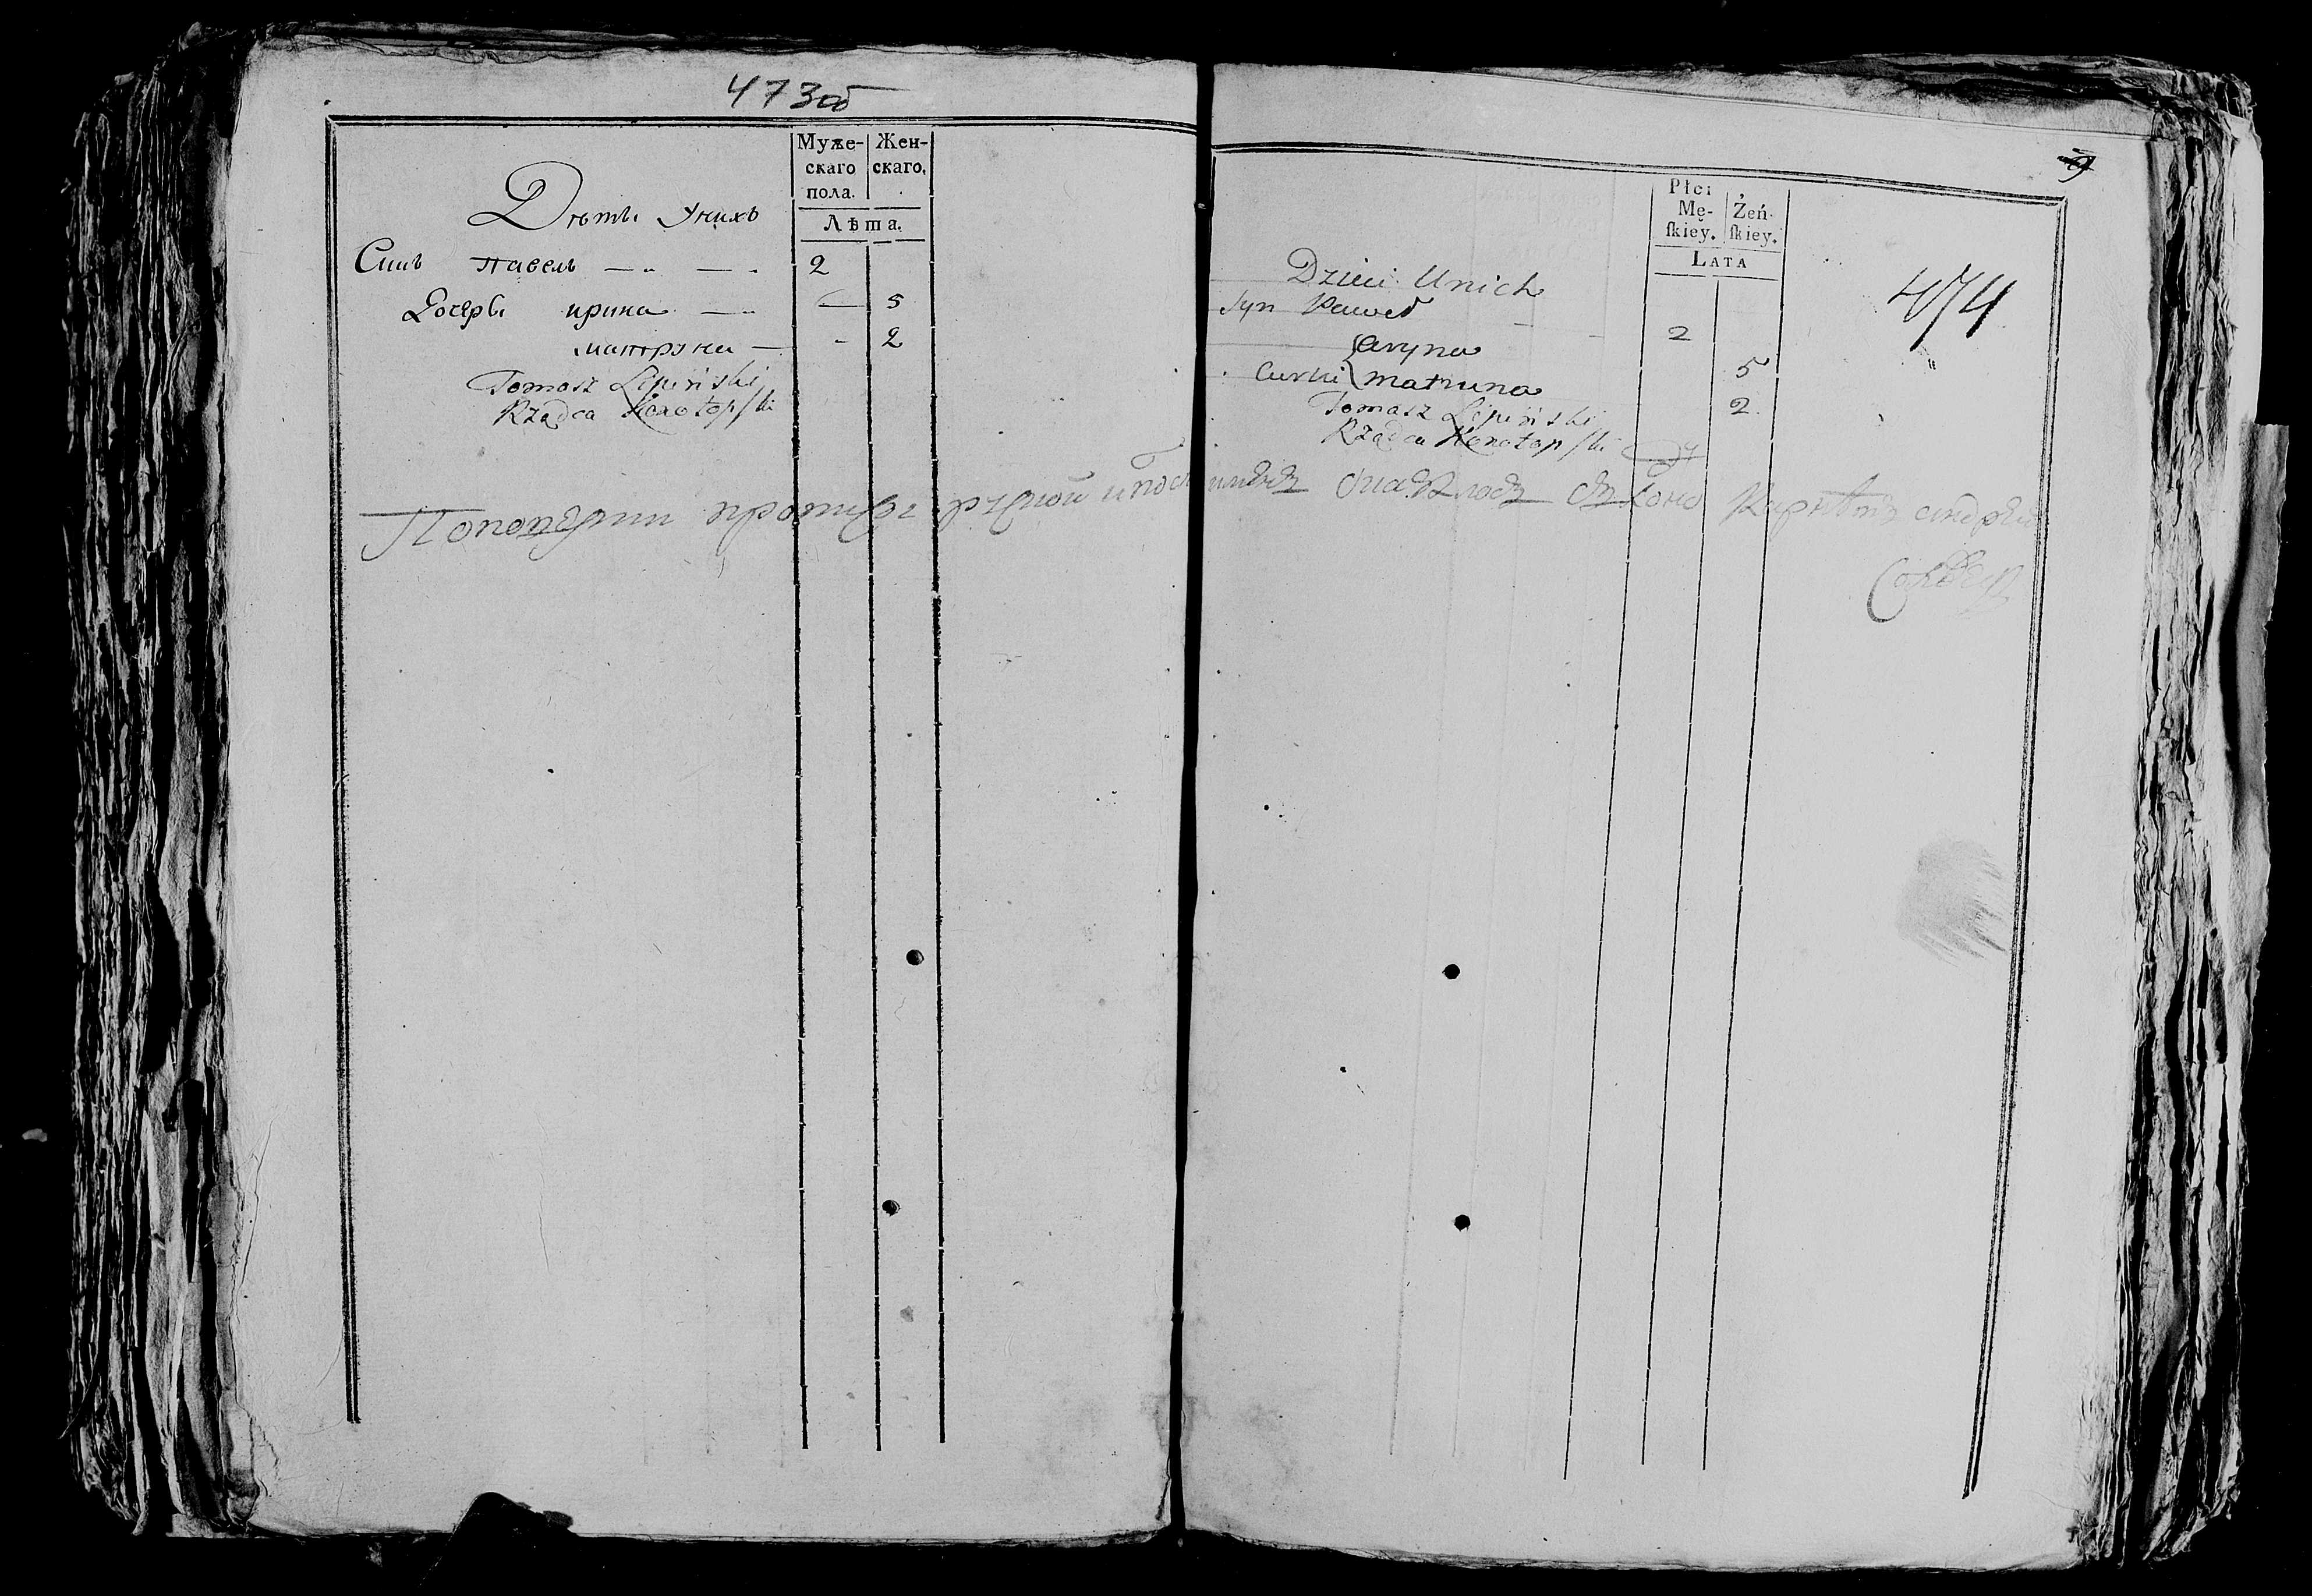 473об
Муже-
скаго
пола.
Жен-
скаго.
Лѣта.
Дѣти Унихъ
Синъ павелъ — „ — „ 2
Дочери ирина — „ — 5
матруна — - 2
Tomasz Lipiński
Rządca Konotopſki
9
Płci
Mę-
ſkiey.
Żeń-
ſkiey.
LATA
474
Dzieci Unich
Syn Paweł - - 2
Aryna 5
Curki { Matruna 2
Tomasz Lipiński
Rządca Konotopſki